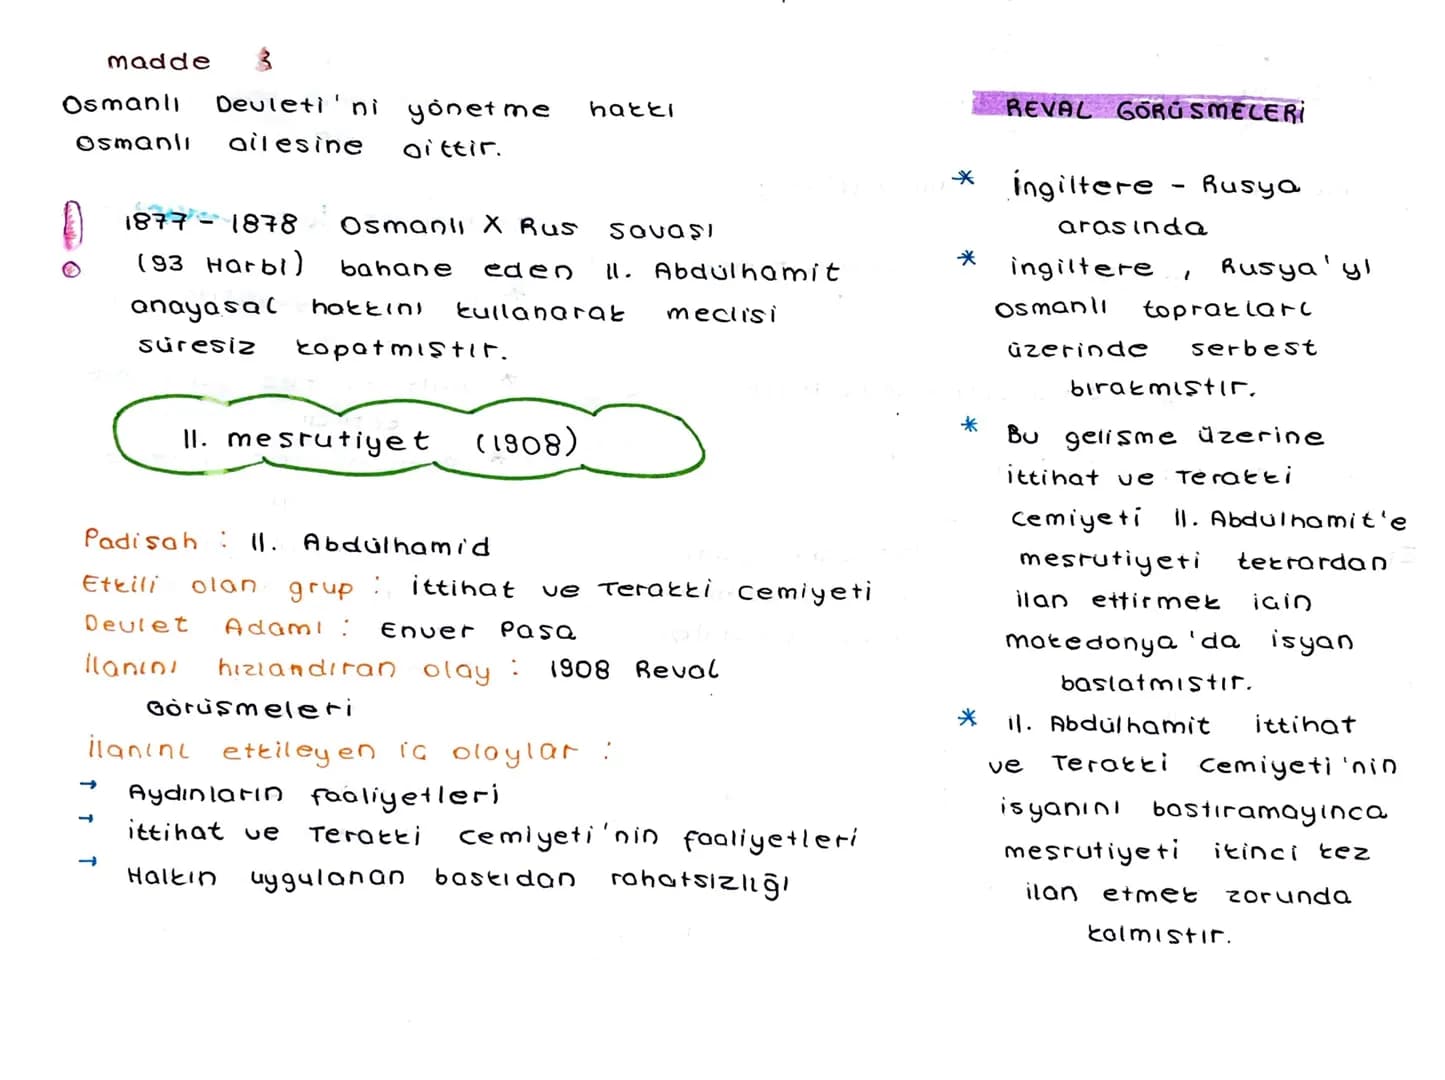 madde 3
Osmanlı Devleti'ni yönetme hakkı
Osmanlı ailesine aittir.
1877 - 1878 Osmanlı X Rus savaşı
(93 Harbi) bahane eden II. Abdülhamit
anayasal hakkını kullanarak meclisi
süresiz kapatmıştır.
II. mesrutiyet (1908)
Padisah : II. Abdülhamid
Etkili olan grup : İttihat ve Terakki cemiyeti
Devlet Adamı : Enver Pasa
İlanını hızlandıran olay : 1908 Reval
Görüşmeleri
İlanını etkileyen iç olaylar :
→ Aydınların faaliyetleri
→ ittihat ve Terakki cemiyeti'nin faaliyetleri
→ Halkın uygulanan baskıdan rahatsızlığı
REVAL GÖRÜSMELERİ
* İngiltere - Rusya
arasında
* ingiltere , Rusya'yı
osmanlı toprakları
üzerinde serbest
bırakmıstır.
* Bu gelisme üzerine
ittihat ve Terakki
cemiyeti II. Abdülhamit'e
mesrutiyeti tekrardan
ilan ettirmek için
makedonya'da isyan
baslatmıstır.
* II. Abdülhamit ittihat
ve Terakki cemiyeti'nin
isyanını bastıramayınca
mesrutiyeti ikinci kez
ilan etmek zorunda
kalmıstır.